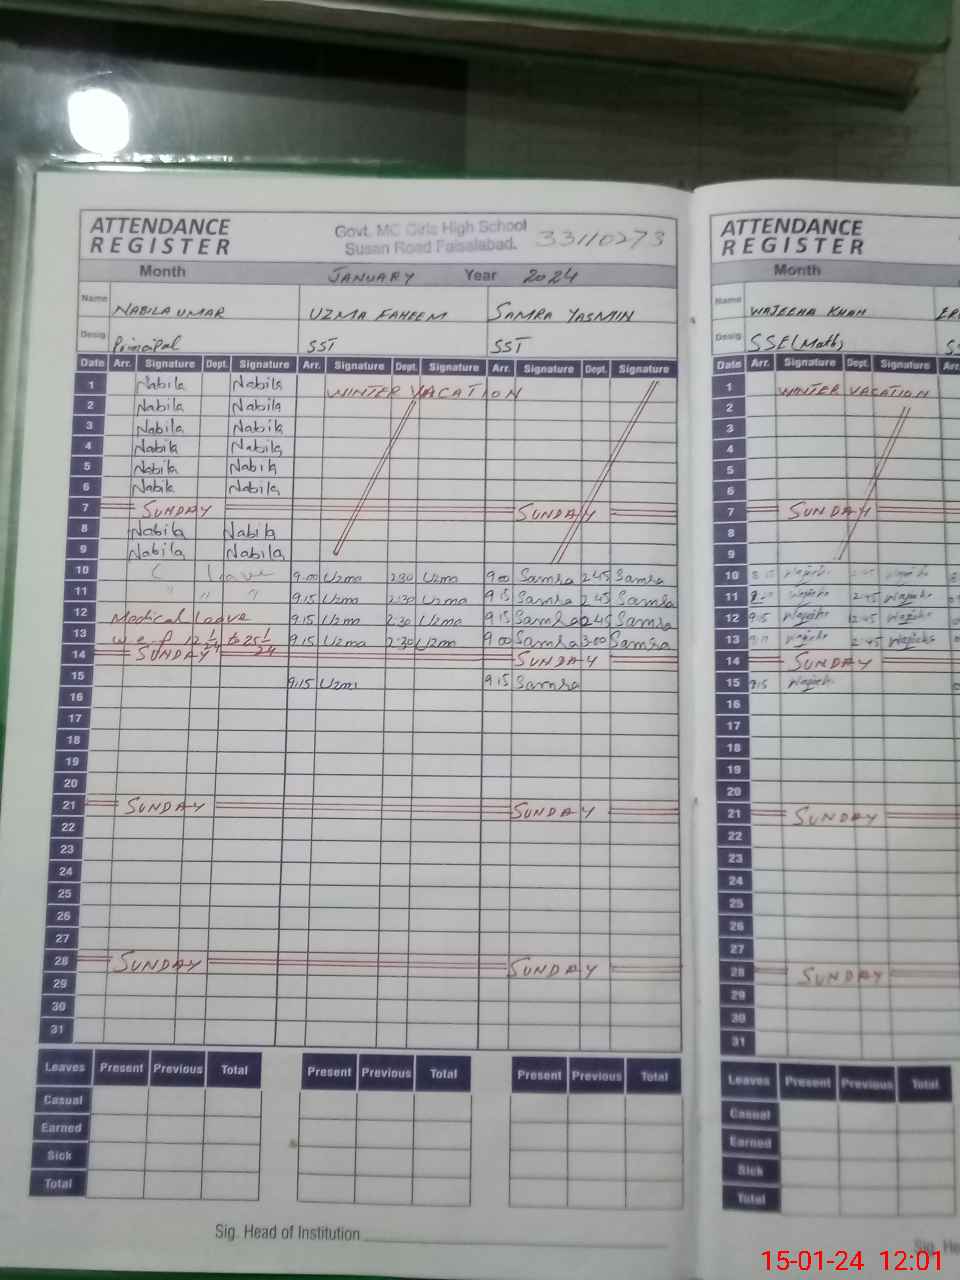 ATTENDANCE REGISTER
Govt. MC Girls High School
Susan Road Faisalabad.
33110273
Month JANUARY Year 2024
Name NABILA UMAR UZMA FAHEEM SAMRA YASMIN
Desig Principal SST SST
Date Arr. Signature Dept. Signature Arr. Signature Dept. Signature Arr. Signature Dept. Signature
1 Nabila Nabila WINTER VACATION
2 Nabila Nabila
3 Nabila Nabila
4 Nabila Nabila
5 Nabila Nabila
6 Nabila Nabila
7 SUNDAY SUNDAY
8 Nabila Nabila
9 Nabila Nabila
10 leave 9.00 Uzma 2.30 Uzma 9.00 Samra 2.45 Samra
11 " " " 9.15 Uzma 2.30 Uzma 9.15 Samra 2.45 Samra
12 Medical Leave 9.15 Uzma 2.30 Uzma 9.15 Samra 2.45 Samra
13 w.e.f 12 1/24 to 25 1/24 9.15 Uzma 2.30 Uzma 9.00 Samra 3.00 Samra
14 SUNDAY SUNDAY
15 9.15 Uzma 9.15 Samra
16
17
18
19
20
21 SUNDAY SUNDAY
22
23
24
25
26
27
28 SUNDAY SUNDAY
29
30
31
Leaves Present Previous Total Present Previous Total Present Previous Total
Casual
Earned
Sick
Total
Sig. Head of Institution
ATTENDANCE REGISTER
Month
Name WAJEEHA KHAN
Desig SSE(Maths)
Date Arr. Signature Dept. Signature Arr.
1 WINTER VACATION
2
3
4
5
6
7 SUNDAY
8
9
10 Wajeeha Wajeeha
11 Wajeeha 2.45 Wajeeha
12 9.15 Wajeeha Wajeeha
13 Wajeeha 2.45 Wajeeha
14 SUNDAY
15 9.15 Wajeeha
16
17
18
19
20
21 SUNDAY
22
23
24
25
26
27
28 SUNDAY
29
30
31
Leaves Present Previous Total
Casual
Earned
Sick
Total
15-01-24 12:01